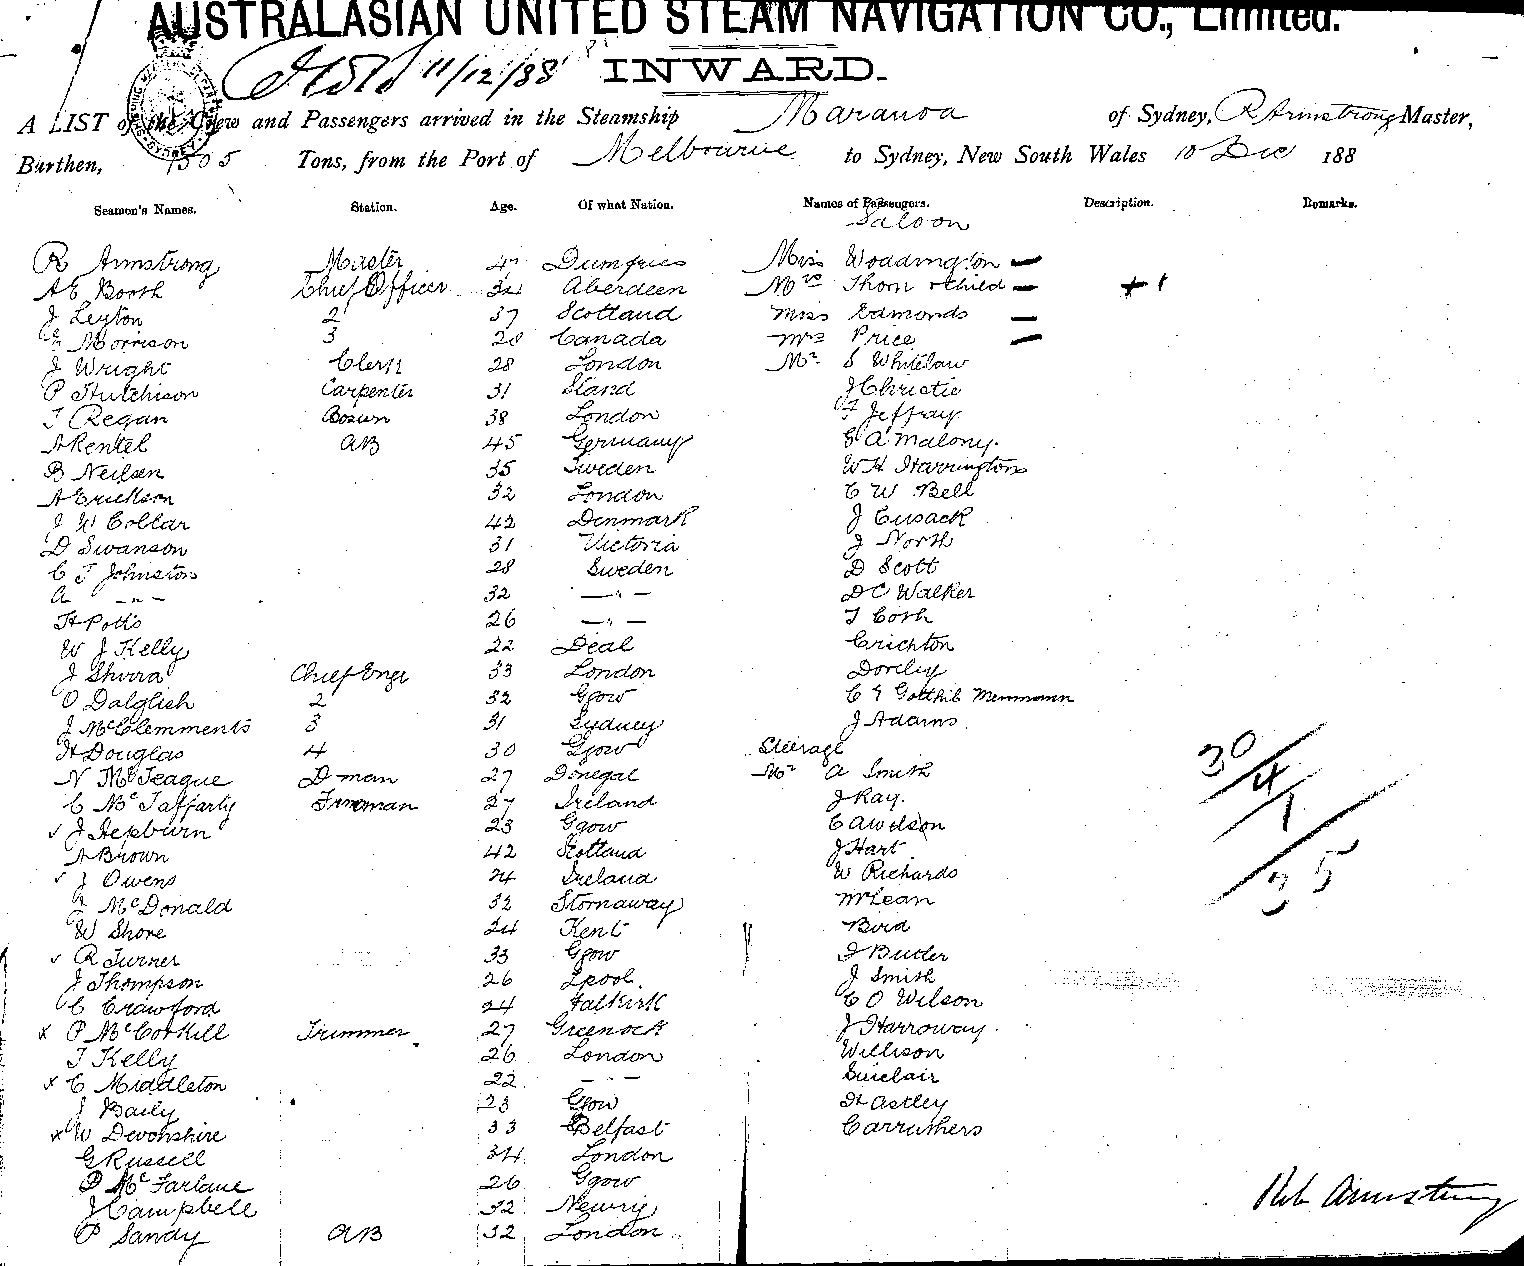 AUSTRALASIAN UNITED STEAM NAVIGATION CO., Limited.
11/12/88 INWARD.
A LIST of the Crew and Passengers arrived in the Steamship Maranoa of Sydney, R Armstrong Master,
Burthen, 1505 Tons, from the Port of Melbourne to Sydney, New South Wales 10 Dec 188
Seamen's Names. Station. Age. Of what Nation. Names of Passengers. Description. Remarks.
Saloon
R Armstrong Master 47 Dumfries Miss Woddington —
A E Booth Chief Officer 34 Aberdeen Mrs Thom & Child — + 1
J Leyton 2 37 Scotland Miss Edmonds —
Morrison 3 28 Canada Mrs Price —
J Wright Clerk 28 London Mr S Whitelaw
P Hutchison Carpenter 31 J Christie
T Regan Bosun 38 London F Jeffray
A Rentel AB 45 Germany E A Malony.
B Neilsen 35 Sweden W H Harrington
A Erickson 32 London C W Bell
J W Collar 42 Denmark J Cusack
D Swanson 31 Victoria J North
C J Johnston 28 Sweden D Scott
A — " — 32 — " — D C Walker
H Potts 26 — " — T Cosh
W J Kelly 22 Deal Crichton
J Chief Engr 33 London
O Dalglish 2 32 Ggow C Gotthib
J McClemments 3 31 Sydney J Adams
H Douglas 4 30 Ggow Steerage
N McTeague D man 27 Donegal Mr A Smith
C McTaffarty Fireman 27 Ireland J Ray.
✓ J Hepburn 23 Ggow C A Wilson
A Brown 42 Scotland J Hart
✓ J Owens 24 Ireland W Richards
McDonald 32 Stornaway McLean
W Shore 24 Kent Bird
✓ R Turner 33 Ggow J Butler
J Thompson 26 Lpool. J Smith
C Crawford 24 Falkirk C O Wilson
x P McCorkill Trimmer 27 Greenock J Harroway
T Kelly 26 London Willison
x C Middleton 22 — " — Sinclair
J Baily 23 Ggow H Astley
x W Devonshire 33 Belfast Carruthers
G Russell 34 London
P McFarlane 26 Ggow
J Campbell 32 Newry
P Sandy AB 32 London
30
4
1
35
Rob Armstrong